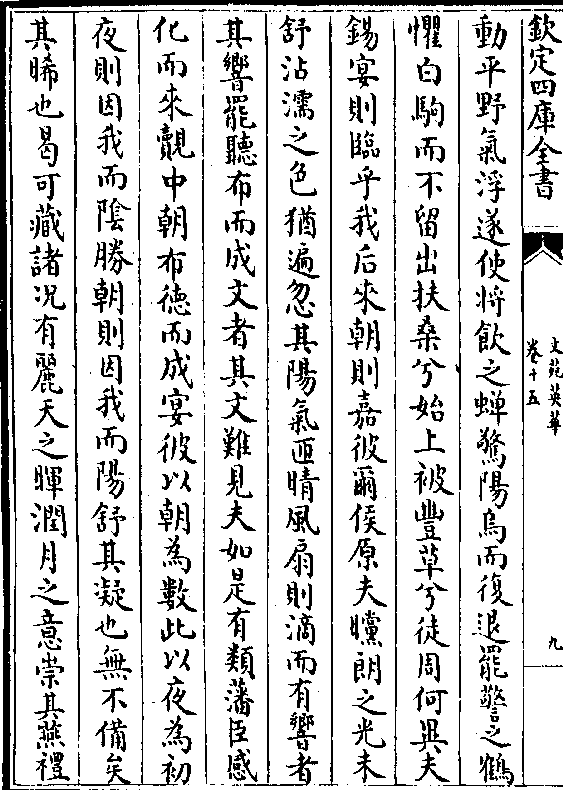 欽定四庫全書
文苑英華
卷十五
九
動平野氣浮遂使將飲之蟬驚陽烏而復退罷警之鶴
懼白駒而不留出扶桑兮始上被豐草兮徒周何異夫
錫宴則臨乎我后來朝則嘉彼爾侯原夫曭朗之光未
舒沾濡之色猶遍忽其陽氣匝晴風扇則滴而有響者
其響罷聽布而成文者其文難見夫如是有類藩臣感
化而來覿中朝布德而成宴彼以朝為數此以夜為初
夜則因我而陰勝朝則因我而陽舒其凝也無不備矣
其晞也曷可藏諸况有麗天之暉潤月之意崇其燕禮